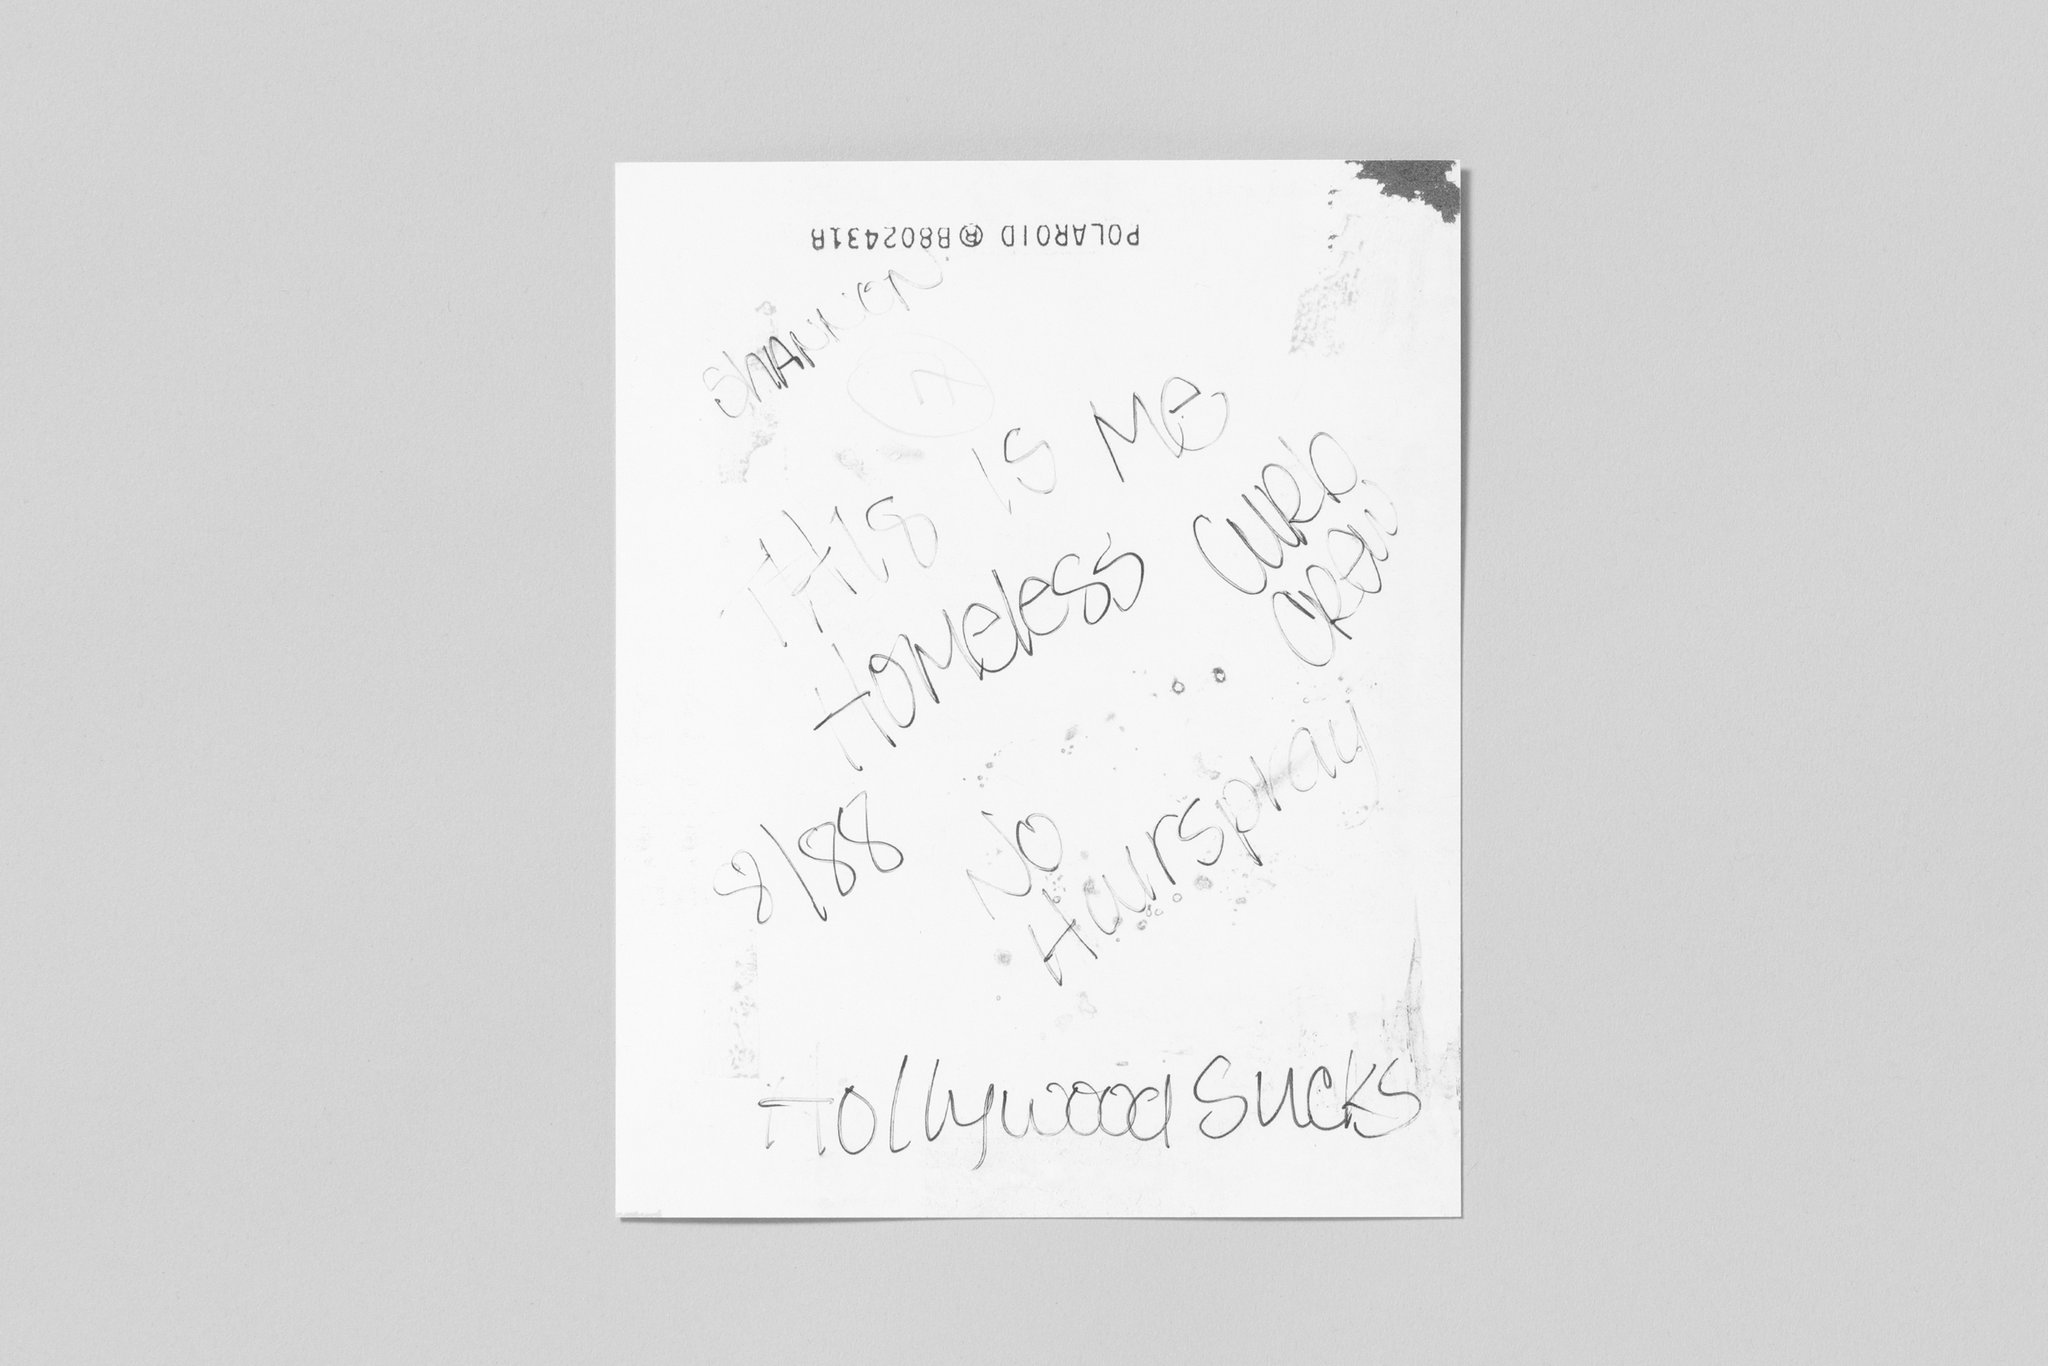 POLAROID ® B802431B
SHANNON
7
THIS IS ME
HOMELESS CURB
CREW
8/88
NO
Hairspray
Hollywood SUCKS